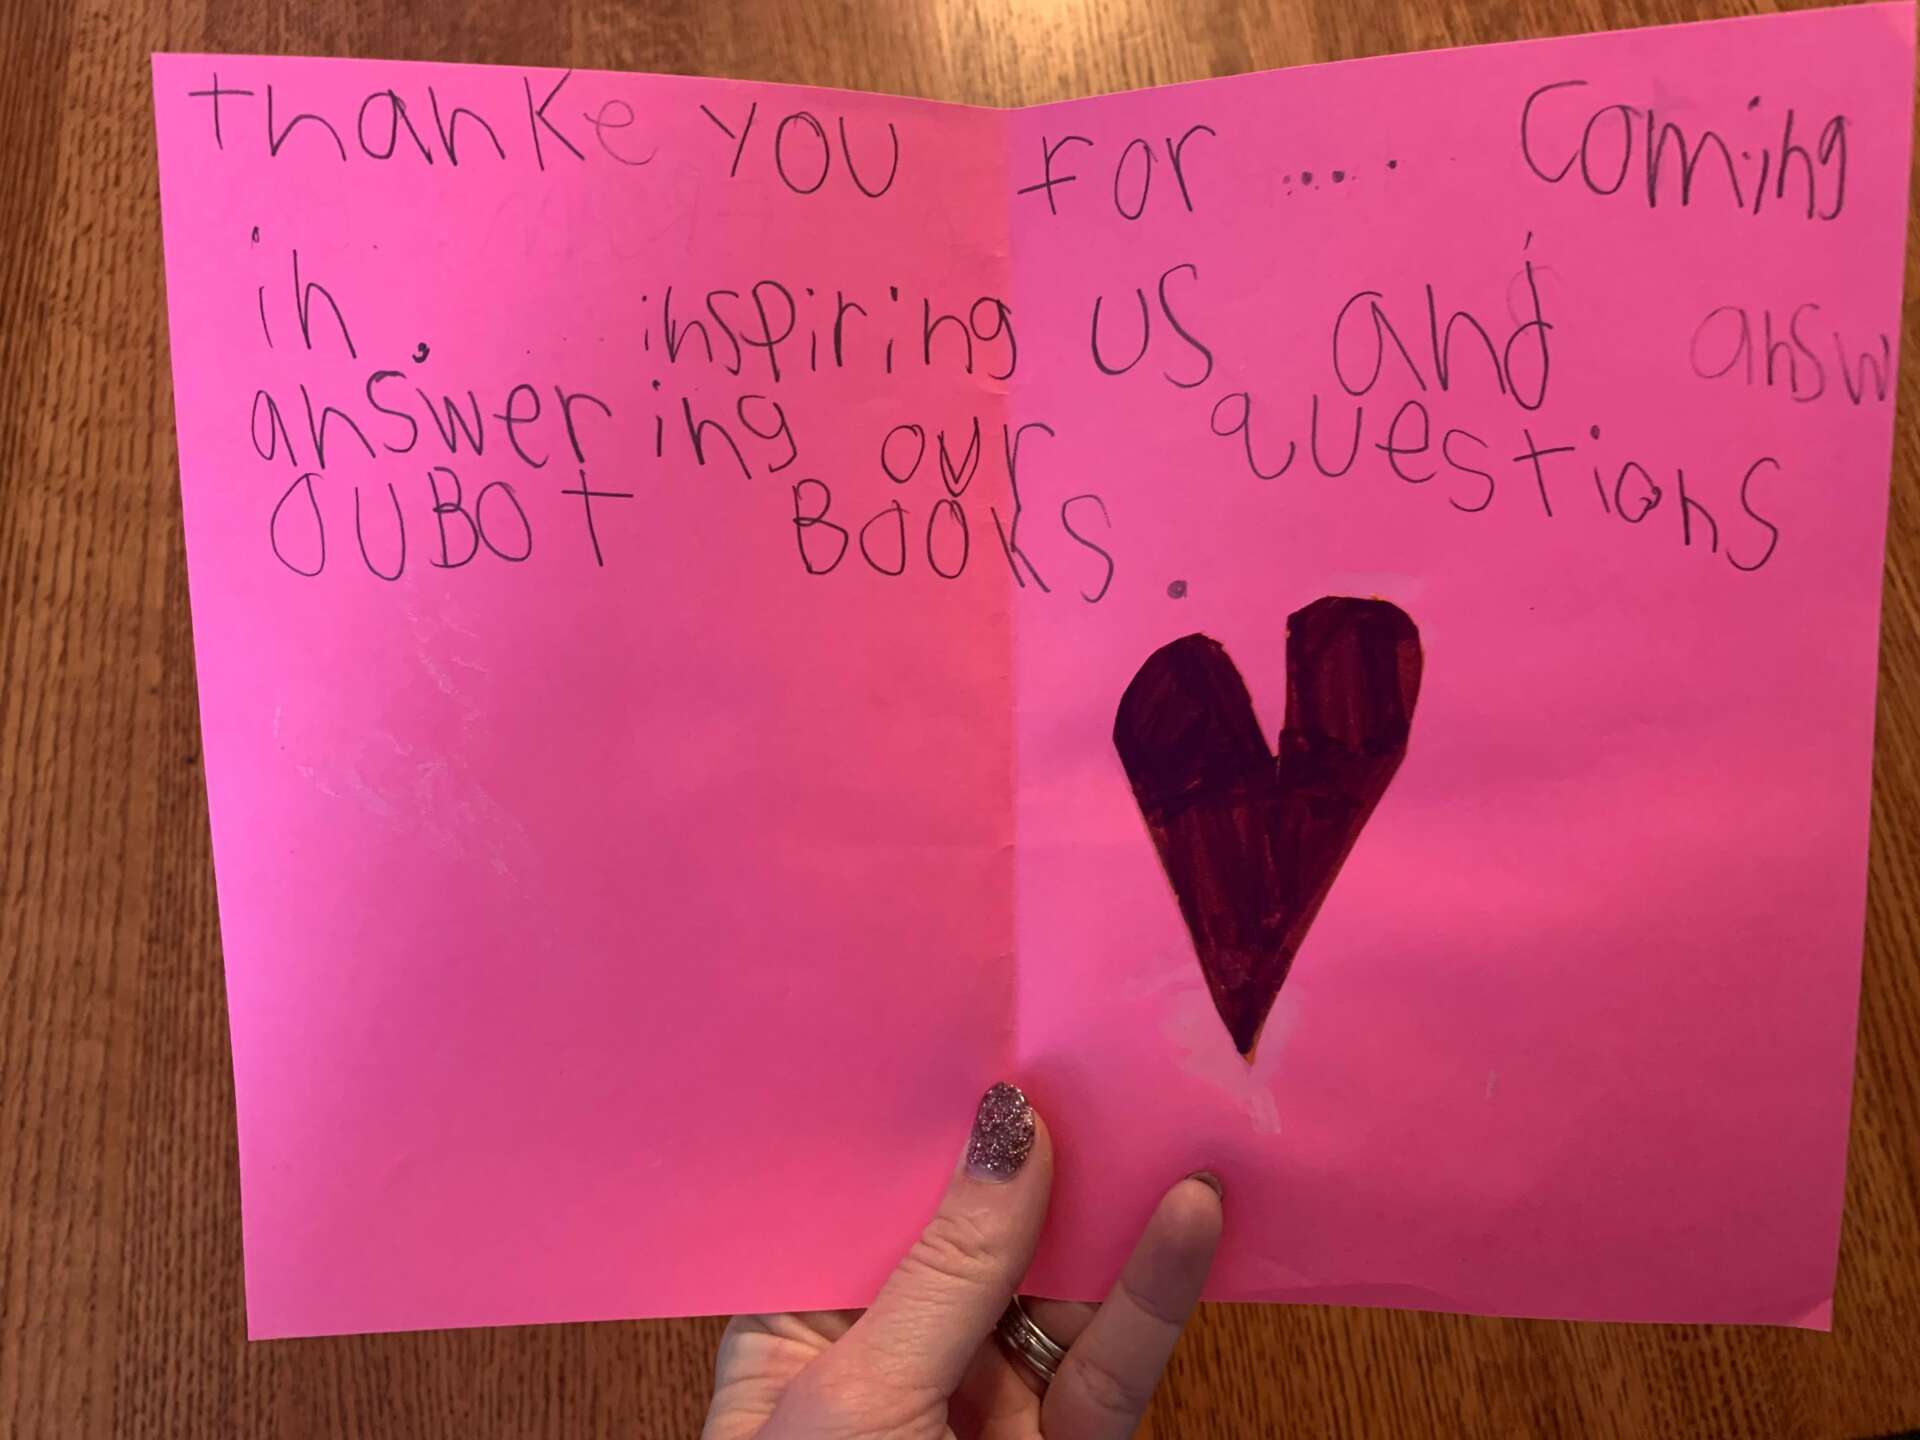 thanke you for .... Coming
in. inspiring us and answ
answering our questions
auBot Books.